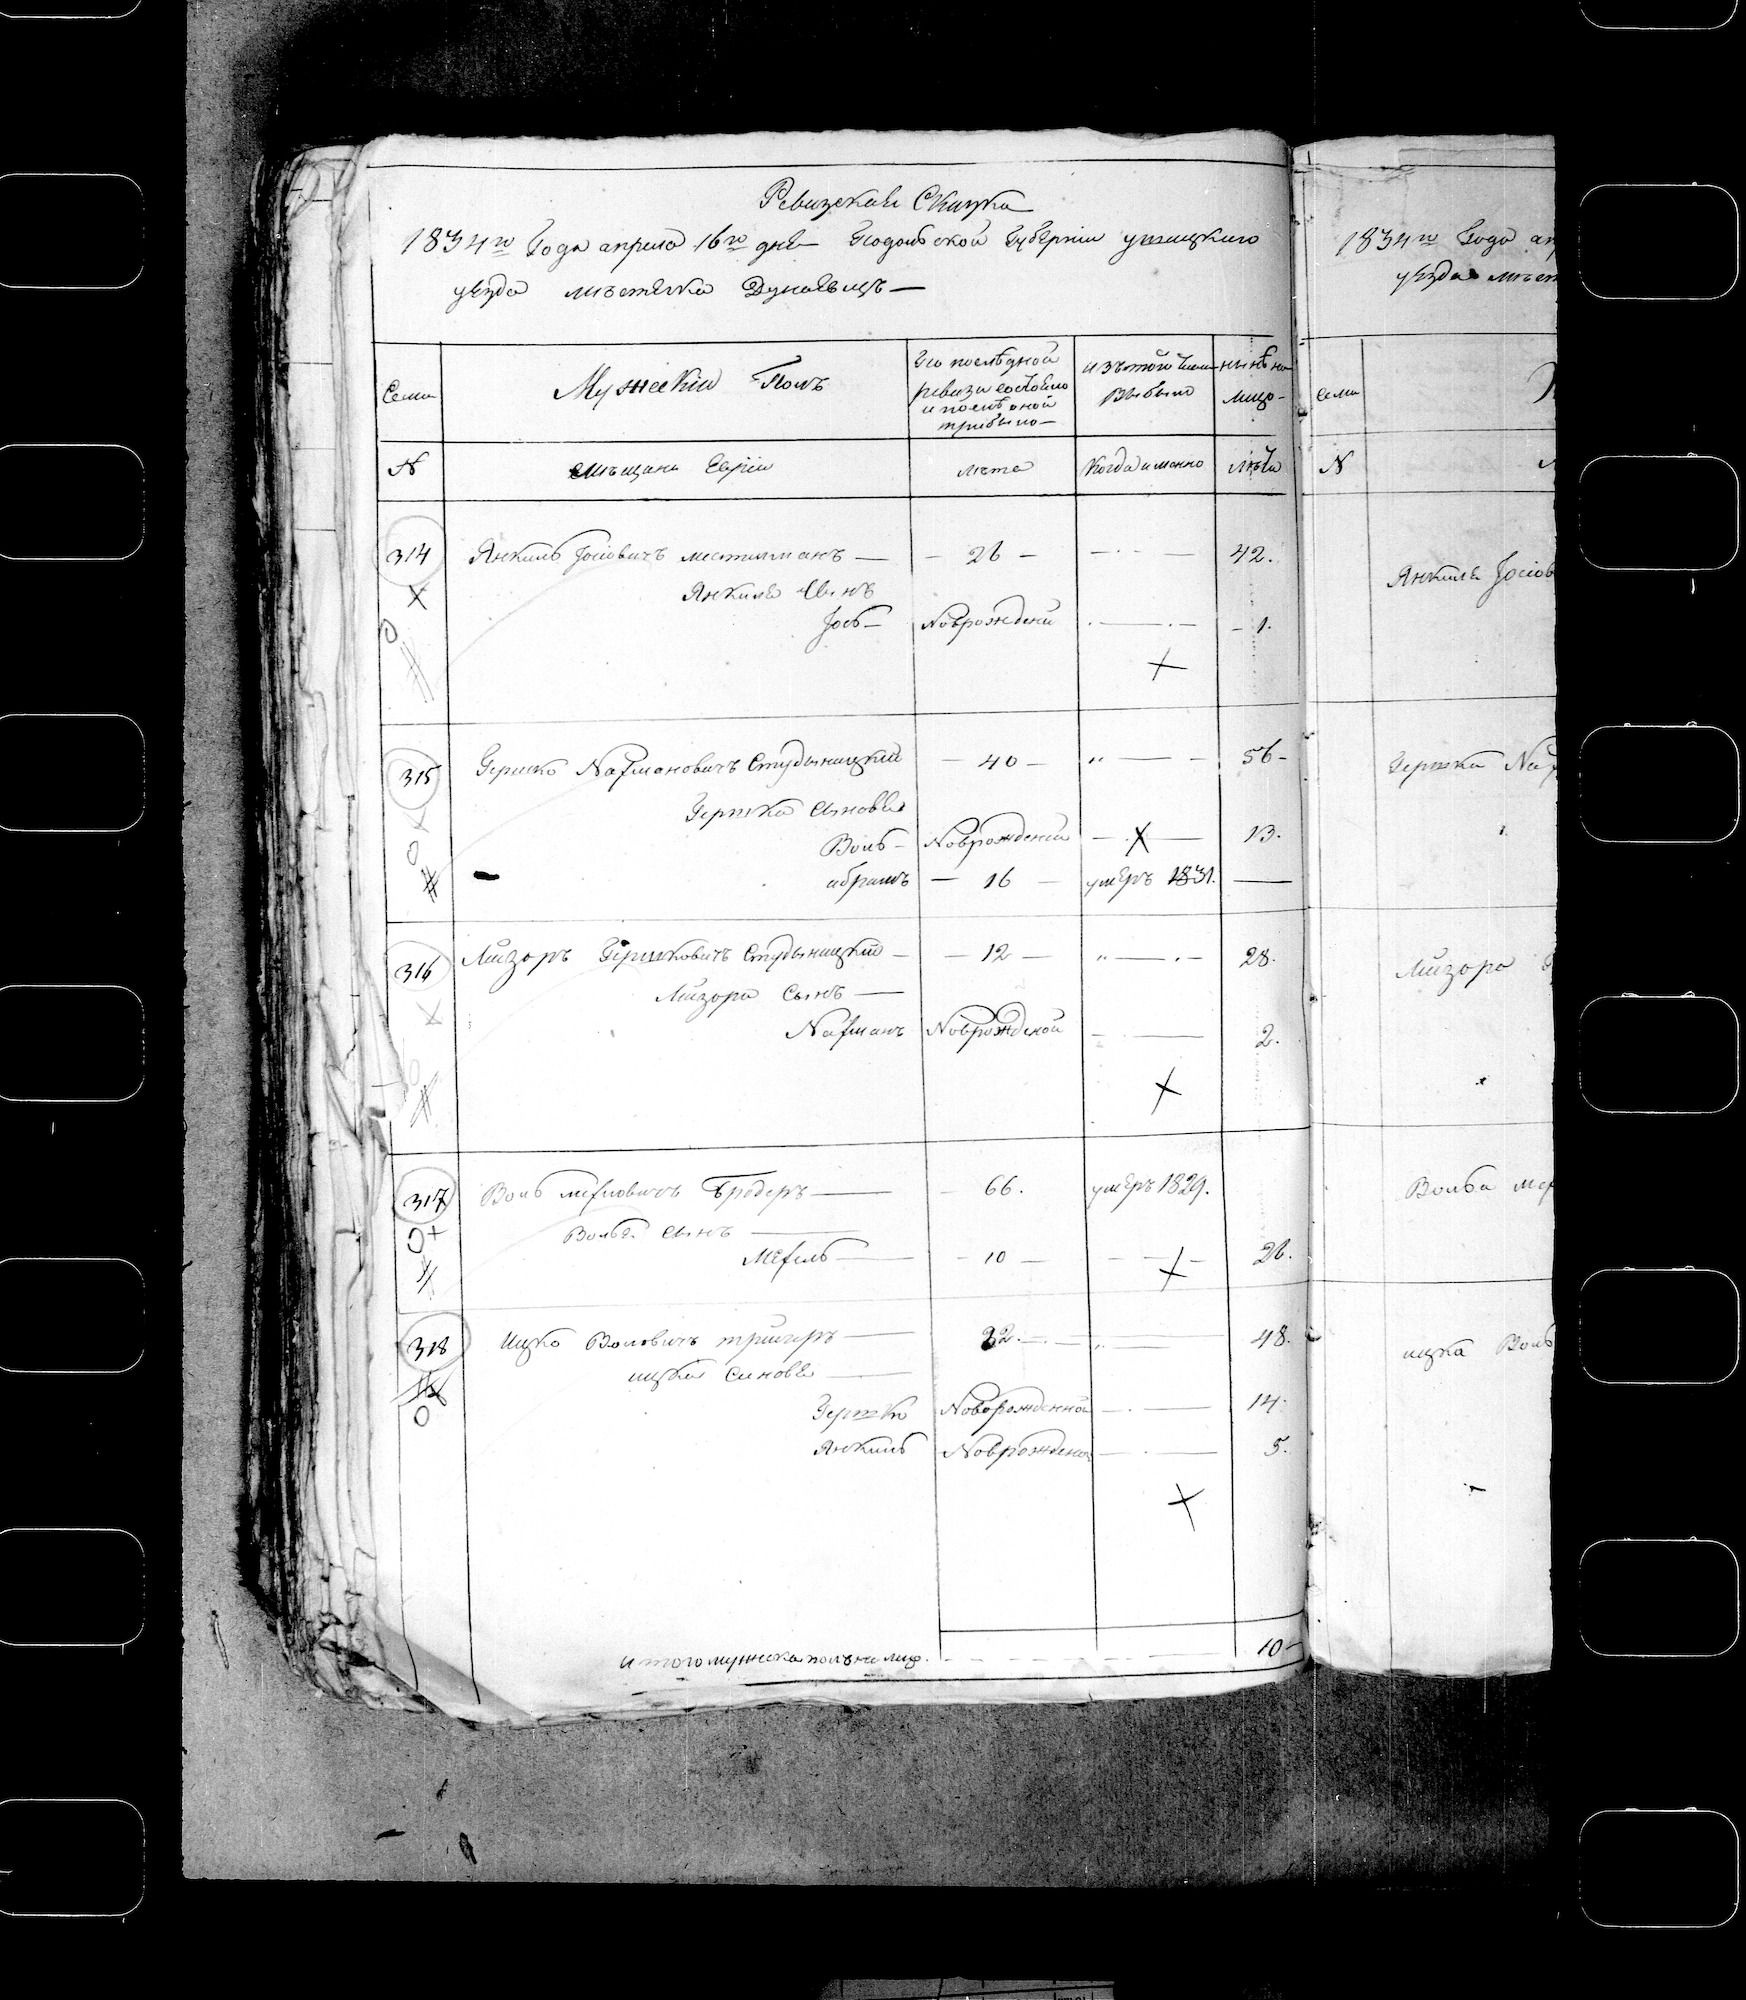 Ревизская Сказка
1834го Года апреля 16го дня Подольской Губернии ушицкого
уезда мъстечка Дунаевцъ —
Семи
Мужескій Полъ
По послѣдной ревизи состояло и послѣ оной прибыло —
изъ того числа Выбыло
нынѣ на лицо —
N
мъщани Евріи
лѣта
Когда именно
лѣта
314 Янкиль Іосіовичъ — 26 — 42.
Янкиля Сынъ
Іось — Новрождени — 1.
315 Гершко Нахмановичъ Студыницкій — 40 — 56 —
Гершка Сыновья
Воль — Новрожденій — 13.
абрамъ — 16 — умеръ 1831. —
316 Лійзоръ Гершковичъ Студыницкій — 12 — 28.
Лійзора Сынъ —
Нахманъ Новрожденой — 2.
317 Воль Мехловичъ Бродеръ — 66. умеръ 1829.
Вольа Сынъ —
Мехель — 10 — 26.
318 Ицко Воловичъ — 32. — 48.
ицка Синовья —
Гершко Новорожденной — 14.
Янкиль Новрождено — 5.
итого мужеска полъ на лицо. 10 —
1834го Года ап
уезда мъст
Семи
N
Янкиля Іосіов
Гершка Нах
Лійзора Г
Вольа Мех
ицка Воль